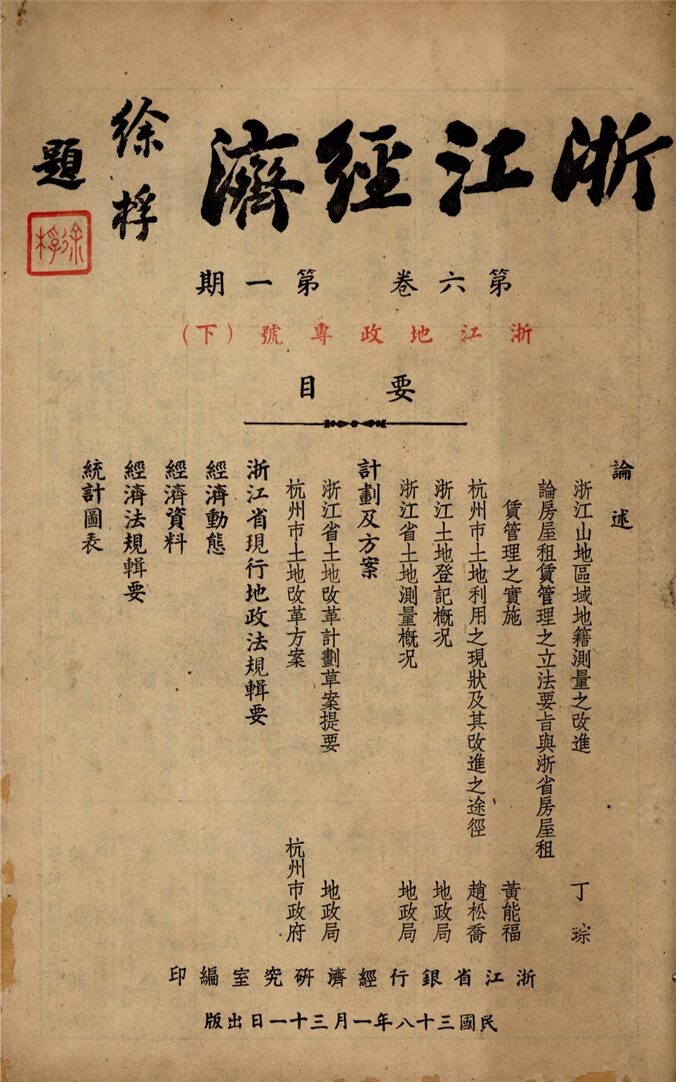 浙江經濟
徐桴
題
徐桴
第六卷 第一期
浙江地政專號(下)
要目
論述
浙江山地區域地籍測量之改進 丁琮
論房屋租賃管理之立法要旨與浙省房屋租
賃管理之實施 黃能福
杭州市土地利用之現狀及其改進之途徑 趙松喬
浙江土地登記概況 地政局
浙江省土地測量概況 地政局
計劃及方案
浙江省土地改革計劃草案提要 地政局
杭州市土地改革方案 杭州市政府
浙江省現行地政法規輯要
經濟動態
經濟資料
經濟法規輯要
統計圖表
浙江省銀行經濟研究室編印
民國三十八年一月三十一日出版